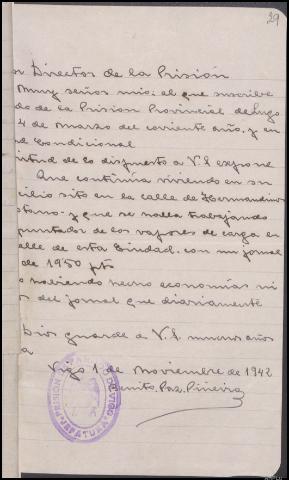 29
Director de la Prisión
Muy señor mio: el que suscribe
do de la Prision Provincial de Lugo
4 de marzo del corriente año, y en
Condicional
virtud de lo dispuesto a V.S expone
Que continúa viviendo en su
cilio sito en la calle de
y que se halla trabajando
apuntador de los vapores de carga en
alle de esta Ciudad, con un jornal
de 19'50 pts
o haviendo hecho economías ni
os del jornal que diariamente
Dios guarde a V.S. muchos años
a
Vigo 1 de Noviembre de 1942
Benito Paz Piñeiro
JEFATURA